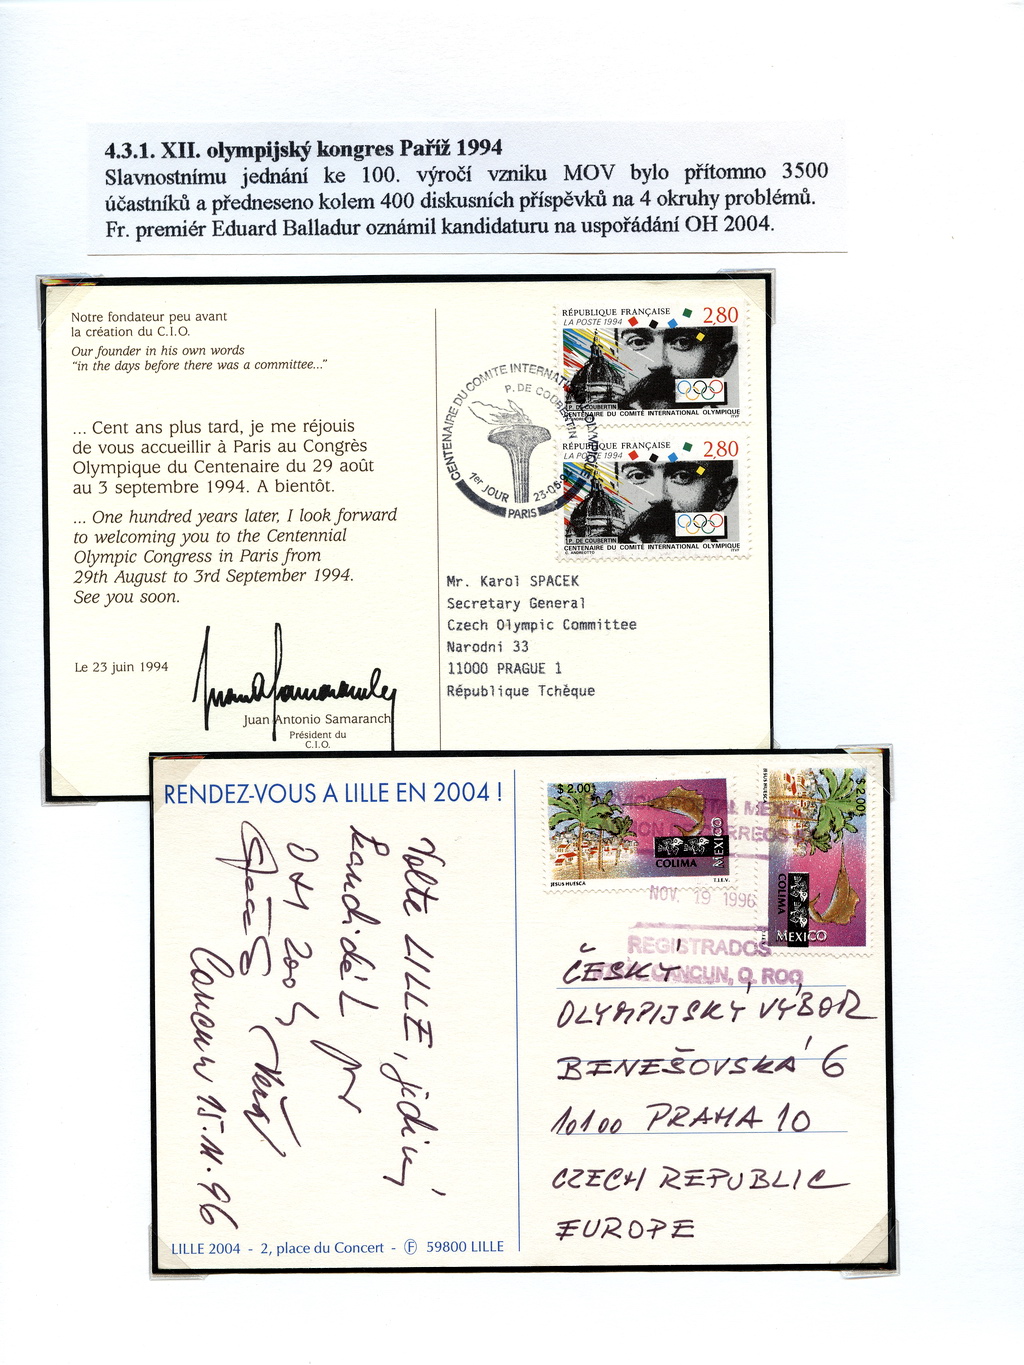 4.3.1. XII. olympijský kongres Paříž 1994
Slavnostnímu jednání ke 100. výročí vzniku MOV bylo přítomno 3500
účastníků a předneseno kolem 400 diskusních příspěvků na 4 okruhy problémů.
Fr. premiér Eduard Balladur oznámil kandidaturu na uspořádání OH 2004.
Notre fondateur peu avant
la création du C.I.O.
Our founder in his own words
"in the days before there was a committee..."
... Cent ans plus tard, je me réjouis
de vous accueillir à Paris au Congrès
Olympique du Centenaire du 29 août
au 3 septembre 1994. A bientôt.
... One hundred years later, I look forward
to welcoming you to the Centennial
Olympic Congress in Paris from
29th August to 3rd September 1994.
See you soon.
Le 23 juin 1994
Juan Antonio Samaranch
Président du
C.I.O.
RÉPUBLIQUE FRANÇAISE 2,80
LA POSTE 1994
P. DE COUBERTIN
CENTENAIRE DU COMITÉ INTERNATIONAL OLYMPIQUE
RÉPUBLIQUE FRANÇAISE 2,80
LA POSTE 1994
P. DE COUBERTIN
CENTENAIRE DU COMITÉ INTERNATIONAL OLYMPIQUE
C. ANDREOTTO ITVF
CENTENAIRE DU COMITE INTERNATIONAL OLYMPIQUE
P. DE COUBERTIN
1er JOUR
PARIS
Mr. Karol SPACEK
Secretary General
Czech Olympic Committee
Narodni 33
11000 PRAGUE 1
République Tchèque
RENDEZ-VOUS A LILLE EN 2004 !
Volte LILLE, jediný
kandidát pro
OH 2004
Cancun 15.11.96
LILLE 2004 - 2, place du Concert - F 59800 LILLE
$ 2.00
COLIMA
MEXICO
JESUS HUESCA T.I.E.V.
JESUS HUESCA
$ 2.00
COLIMA
MEXICO
NOV. 19 1996
REGISTRADOS
CANCUN, Q. ROO
ČESKÝ
OLYMPIJSKÝ VÝBOR
BENEŠOVSKÁ 6
10100 PRAHA 10
CZECH REPUBLIC
EUROPE